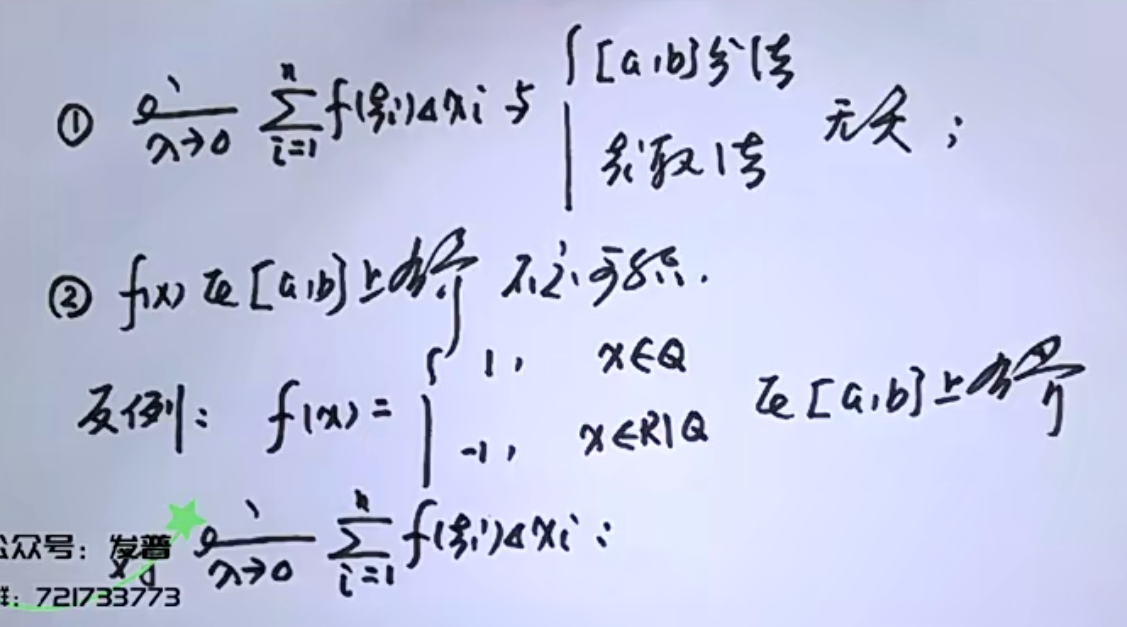 ① lim λ→0 ∑ i=1 n f(ξi)Δxi 与 { [a,b]分法 ξi取法 无关;
② f(x) 在 [a,b] 上有界 不一定可积.
反例: f(x) = { 1, x∈Q -1, x∈R\Q 在 [a,b] 上有界
对 lim λ→0 ∑ i=1 n f(ξi)Δxi :
公众号: 发普
群: 721733773